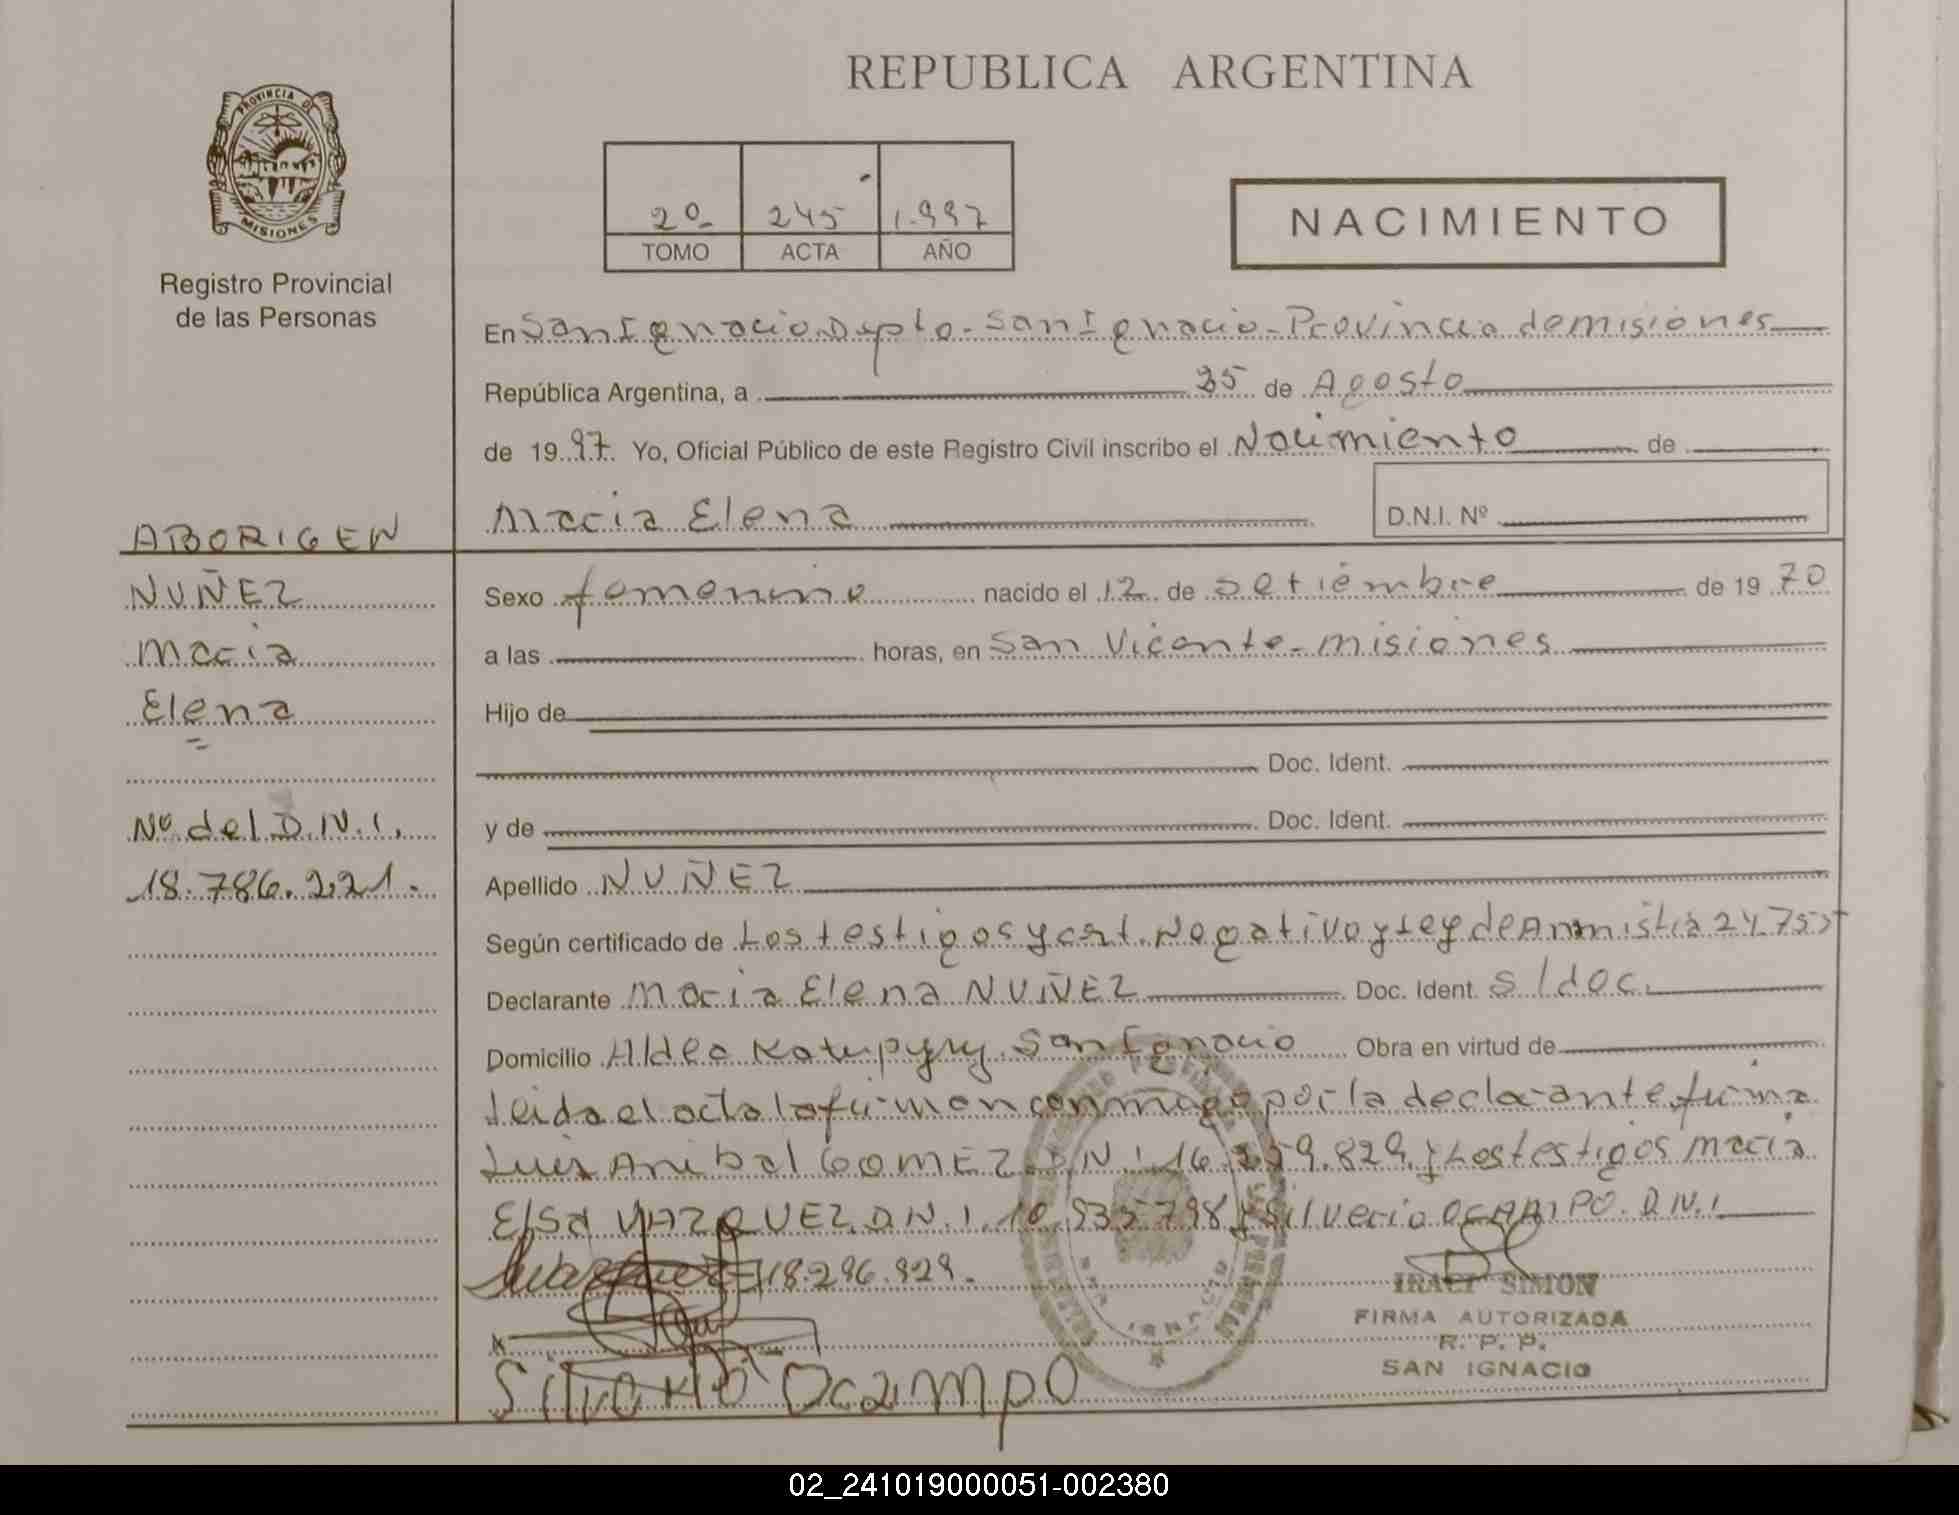 REPUBLICA ARGENTINA
PROVINCIA DE
MISIONES
Registro Provincial
de las Personas
2º 245 1.997
TOMO ACTA AÑO
NACIMIENTO
En San Ignacio Dpto. San Ignacio - Provincia de misiones
República Argentina, a 25 de Agosto
de 1997 Yo, Oficial Público de este Registro Civil inscribo el Nacimiento de
Maria Elena D.N.I. Nº
ABORIGEN
NUÑEZ
Maria
Elena
Nº del D.N.I.
18.786.221.
Sexo femenino nacido el 12 de setiembre de 1970
a las horas, en San Vicente - misiones
Hijo de
Doc. Ident.
y de Doc. Ident.
Apellido NUÑEZ
Según certificado de Los testigos y cert. Negativo y Ley de Anmistia 24.755
Declarante Maria Elena NUÑEZ Doc. Ident. s/doc.
Domicilio Aldea Katupyry San Ignacio Obra en virtud de
Leida el acta la firman conmigo por la declarante firma
Luis Anibal GOMEZ D.N.I 16. 829. y Los testigos Maria
Elsa VAZQUEZ D.N.I. 10.935798 y Silverio OCAMPO. D.N.I
18.296.929.
Silverio Ocampo
IRACI SIMON
FIRMA AUTORIZADA
R. P. P.
SAN IGNACIO
02_241019000051-002380